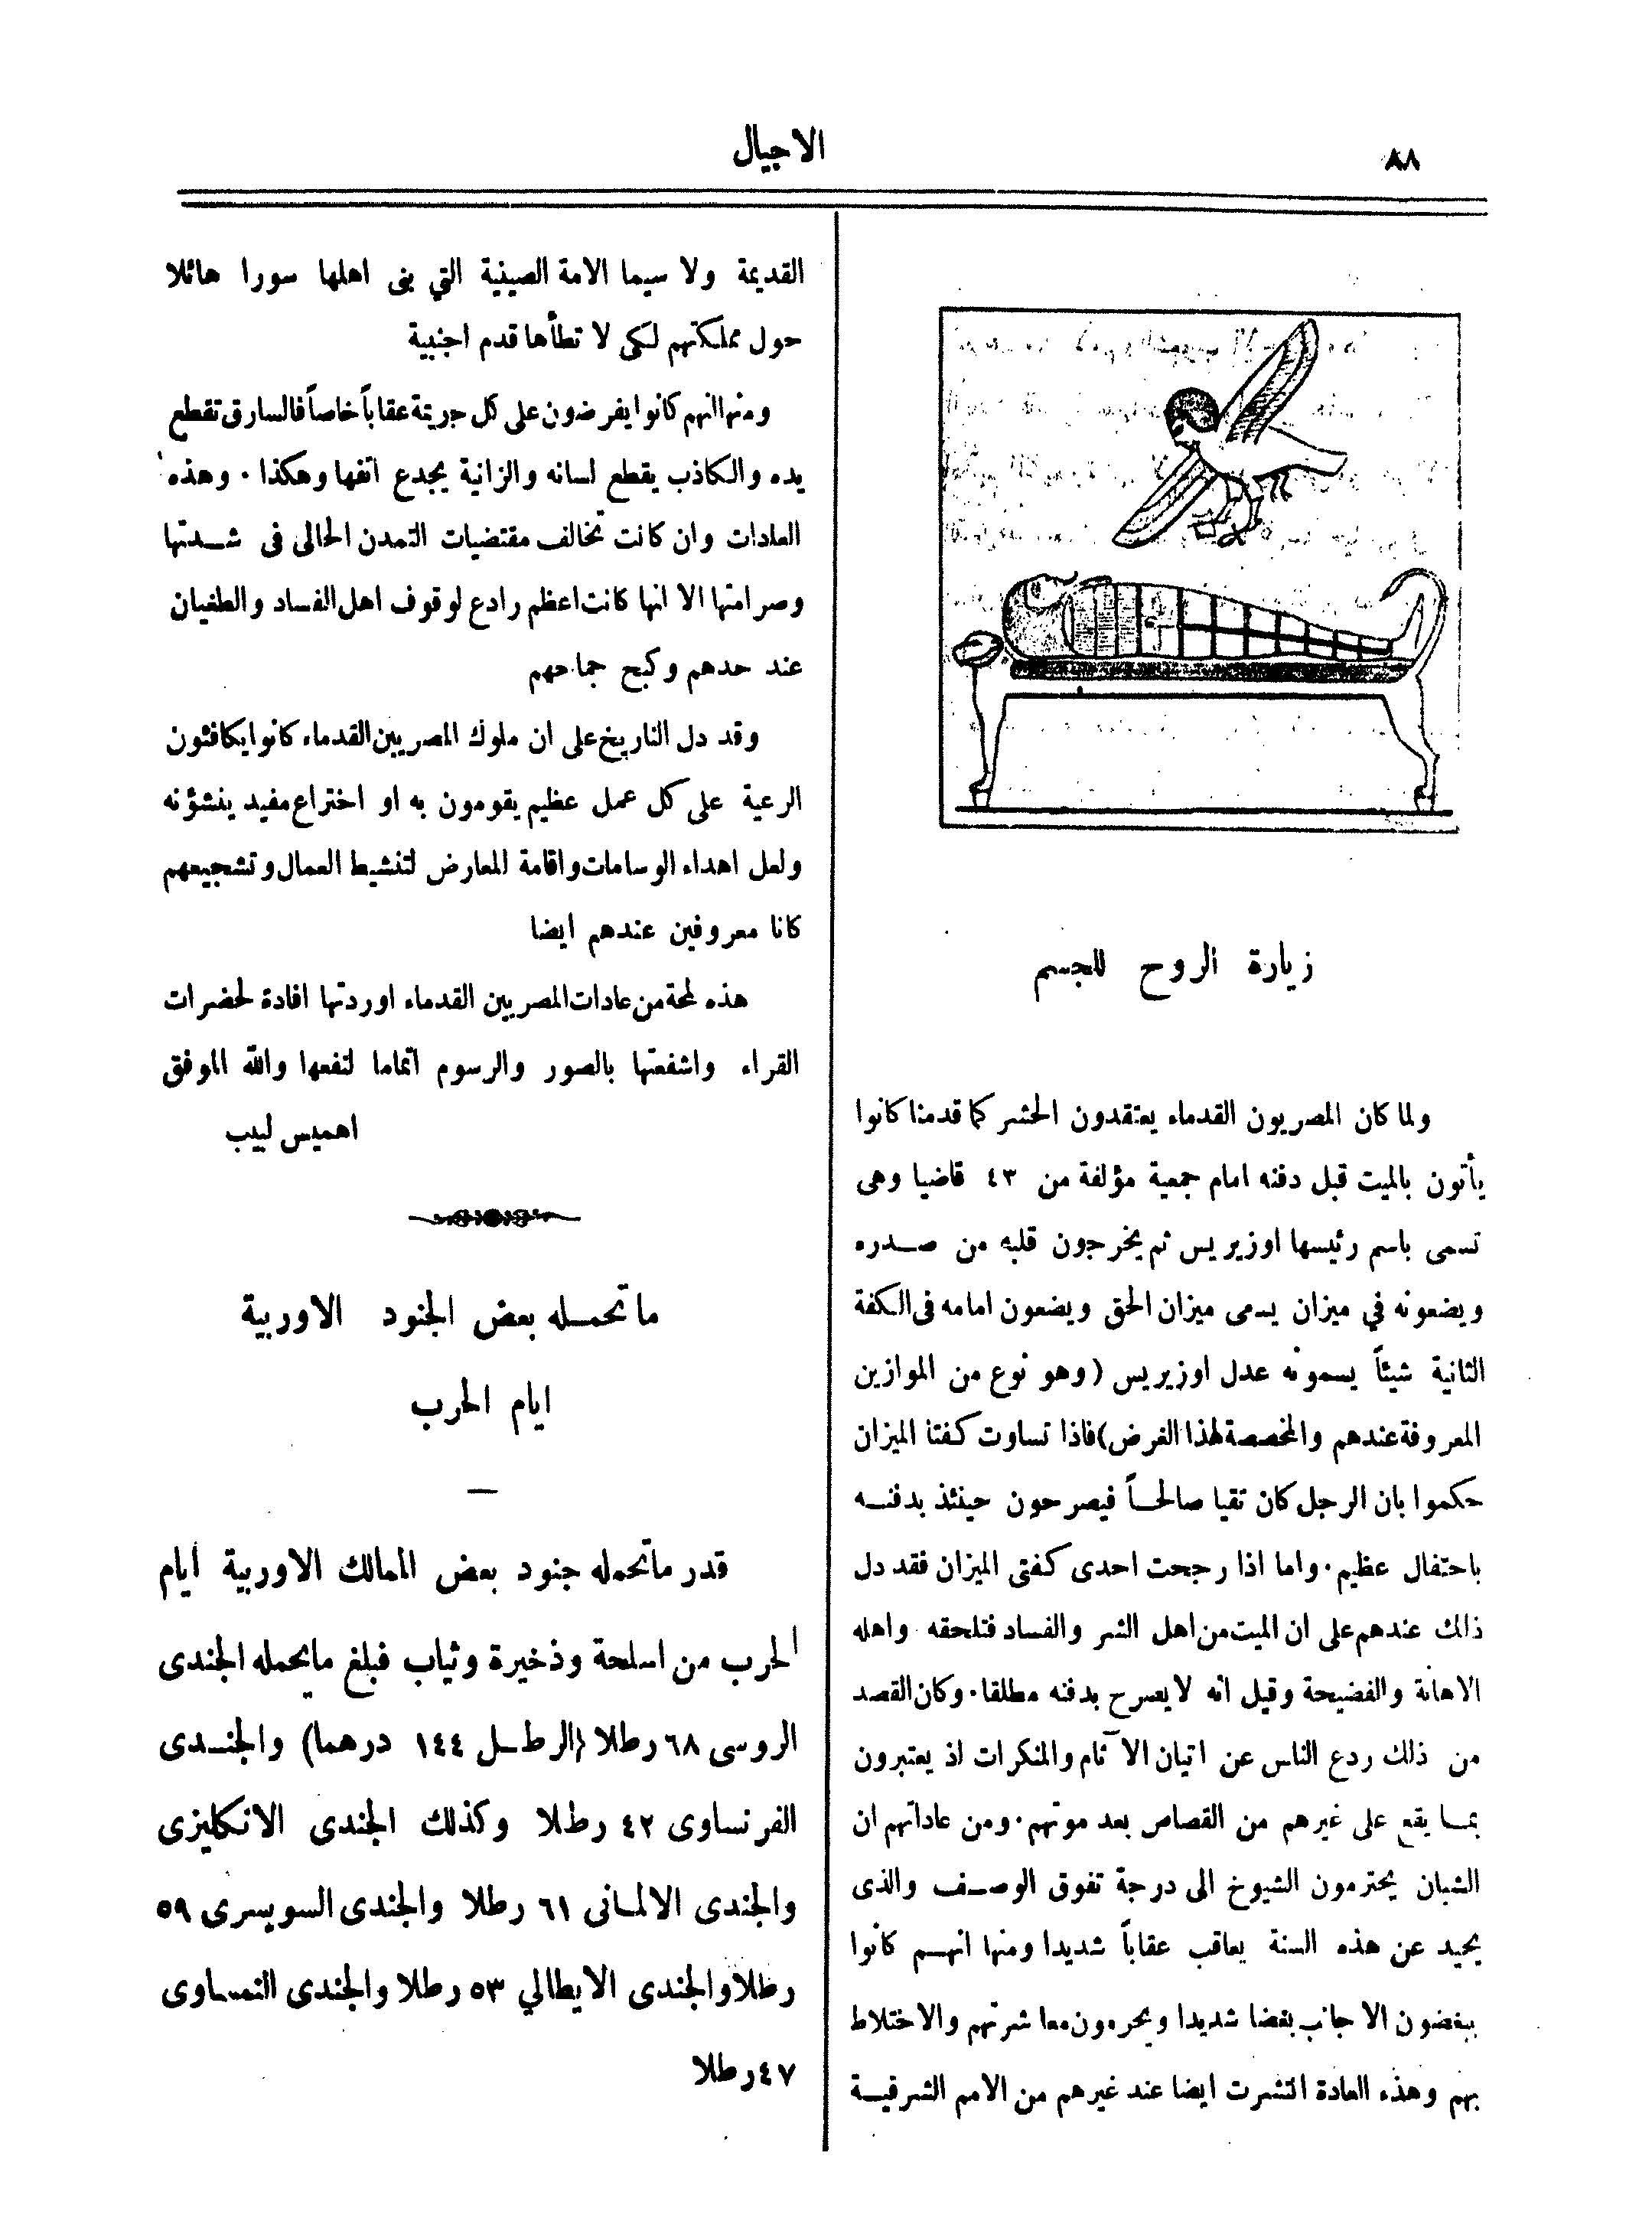 ٨٨
الاجيال
زيارة الروح للجسم
ولما كان المصريون القدماء يعتقدون الحشر كما قدمنا كانوا
يأتون بالميت قبل دفنه امام جمعية مؤلفة من ٤٣ قاضيا وهى
تسمى باسم رئيسها اوزيريس ثم يخرجون قلبه من صدره
ويضعونه في ميزان يسمى ميزان الحق ويضعون امامه فى الكفة
الثانية شيئاً يسمونه عدل اوزيريس (وهو نوع من الموازين
المعروفة عندهم والمخصصة لهذا الغرض) فاذا تساوت كفتا الميزان
حكموا بان الرجل كان تقيا صالحاً فيصرحون حينئذ بدفنه
باحتفال عظيم. واما اذا رجحت احدى كفتى الميزان فقد دل
ذالك عندهم على ان الميت من اهل الشر والفساد فتلحقه واهله
الاهانة والفضيحة وقيل انه لا يصرح بدفنه مطلقا. وكان القصد
من ذلك ردع الناس عن اتيان الآثام والمنكرات اذ يعتبرون
بما يقع على غيرهم من القصاص بعد موتهم. ومن عاداتهم ان
الشبان يحترمون الشيوخ الى درجة تفوق الوصف والذى
يحيد عن هذه السنة يعاقب عقاباً شديدا ومنها انهم كانوا
يبغضون الاجانب بغضا شديدا ويحرمون معاشرتهم والاختلاط
بهم وهذه العادة انتشرت ايضا عند غيرهم من الامم الشرقية
القديمة ولا سيما الامة الصينية التي بنى اهلها سورا هائلا
حول مملكتهم لكى لا تطأها قدم اجنبية
ومنها انهم كانوا يفرضون على كل جريمة عقاباً خاصاً فالسارق تقطع
يده والكاذب يقطع لسانه والزانية يجدع انفها وهكذا. وهذه
العادات وان كانت تخالف مقتضيات التمدن الحالى فى شدتها
وصرامتها الا انها كانت اعظم رادع لوقوف اهل الفساد والطغيان
عند حدهم وكبح جماحهم
وقد دل التاريخ على ان ملوك المصريين القدماء كانوا يكافئون
الرعية على كل عمل عظيم يقومون به او اختراع مفيد ينشؤنه
ولعل اهداء الوسامات واقامة المعارض لتنشيط العمال وتشجيعهم
كانا معروفين عندهم ايضا
هذه لمحة من عادات المصريين القدماء اوردتها افادة لحضرات
القراء واشفعتها بالصور والرسوم اتماما لنفعها والله الموفق
اهميس لبيب
ما تحمله بعض الجنود الاوربية
ايام الحرب
قدر ما تحمله جنود بعض الممالك الاوربية ايام
الحرب من اسلحة وذخيرة وثياب فبلغ ما يحمله الجندى
الروسى ٦٨ رطلا (الرطل ١٤٤ درهما) والجندى
الفرنساوى ٤٢ رطلا وكذلك الجندى الانكليزى
والجندى الالمانى ٦١ رطلا والجندى السويسرى ٥٩
رطلا والجندى الايطالي ٥٣ رطلا والجندى النمساوى
٤٧ رطلا